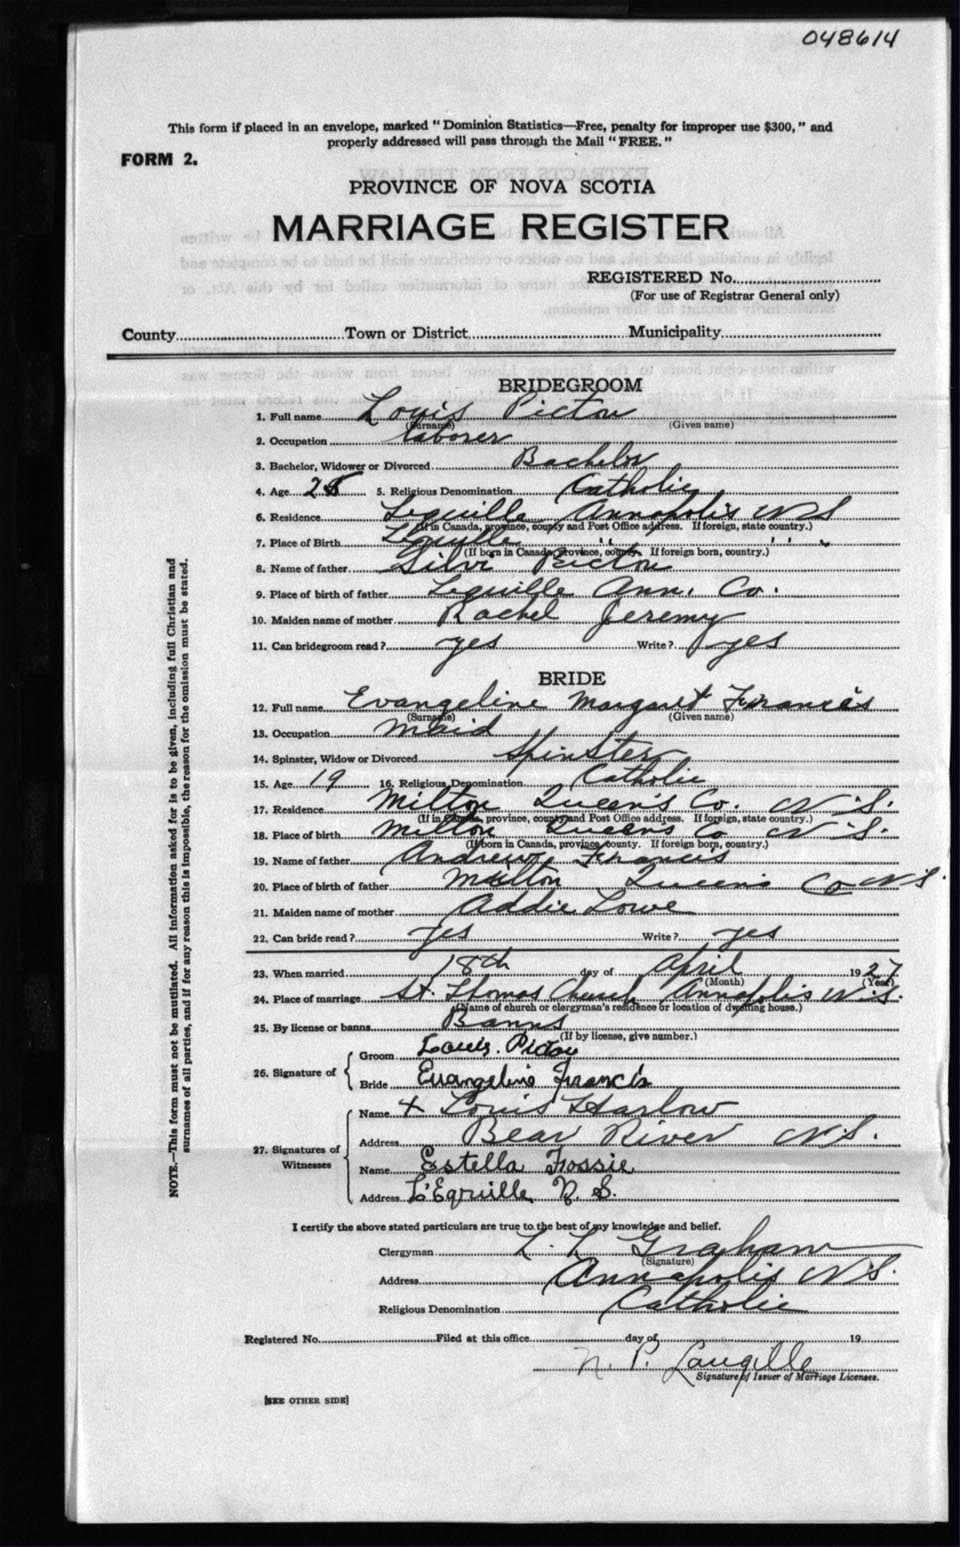 048614
This form if placed in an envelope, marked "Dominion Statistics—Free, penalty for improper use $300," and
properly addressed will pass through the Mail "FREE."
FORM 2.
PROVINCE OF NOVA SCOTIA
MARRIAGE REGISTER
REGISTERED No.
(For use of Registrar General only)
County Town or District Municipality
BRIDEGROOM
1. Full name Louis Pictou
(Surname) (Given name)
2. Occupation Laborer
3. Bachelor, Widower or Divorced Bachelor
4. Age 28 5. Religious Denomination Catholic
6. Residence Lequille Annapolis N S
(If in Canada, province, county and Post Office address. If foreign, state country.)
7. Place of Birth Lequille " " " "
(If born in Canada, province, county. If foreign born, country.)
8. Name of father Silvi Pictou
9. Place of birth of father Lequille Ann. Co.
10. Maiden name of mother Rachel Jeremy
11. Can bridegroom read? yes Write? yes
BRIDE
12. Full name Evangeline Margaret Francis
(Surname) (Given name)
13. Occupation Maid
14. Spinster, Widow or Divorced Spinster
15. Age 19 16. Religious Denomination Catholic
17. Residence Milton Queen's Co. N.S.
(If in Canada, province, county and Post Office address. If foreign, state country.)
18. Place of birth Milton Queens Co N.S.
(If born in Canada, province, county. If foreign born, country.)
19. Name of father Andrew Francis
20. Place of birth of father Milton Queen's Co N S.
21. Maiden name of mother Addie Lowe
22. Can bride read? yes Write? yes
23. When married 18th day of April 1927
(Month) (Year)
24. Place of marriage St. Thomas Church Annapolis N.S.
(Name of church or clergyman's residence or location of dwelling house.)
25. By license or banns Banns
(If by license, give number.)
26. Signature of { Groom Louis. Pictou
Bride Evangeline Francis
27. Signatures of Witnesses { Name + Louis Harlow
Address Bear River N.S.
Name Estella Fossie
Address L'Equille N. S.
I certify the above stated particulars are true to the best of my knowledge and belief.
Clergyman L. L Graham
(Signature)
Address Annapolis N S.
Religious Denomination Catholic
Registered No. Filed at this office day of 19
N. P. Langille
Signature of Issuer of Marriage Licenses.
[SEE OTHER SIDE]
NOTE.—This form must not be mutilated. All information asked for is to be given, including full Christian and
surnames of all parties, and if for any reason this is impossible, the reason for the omission must be stated.